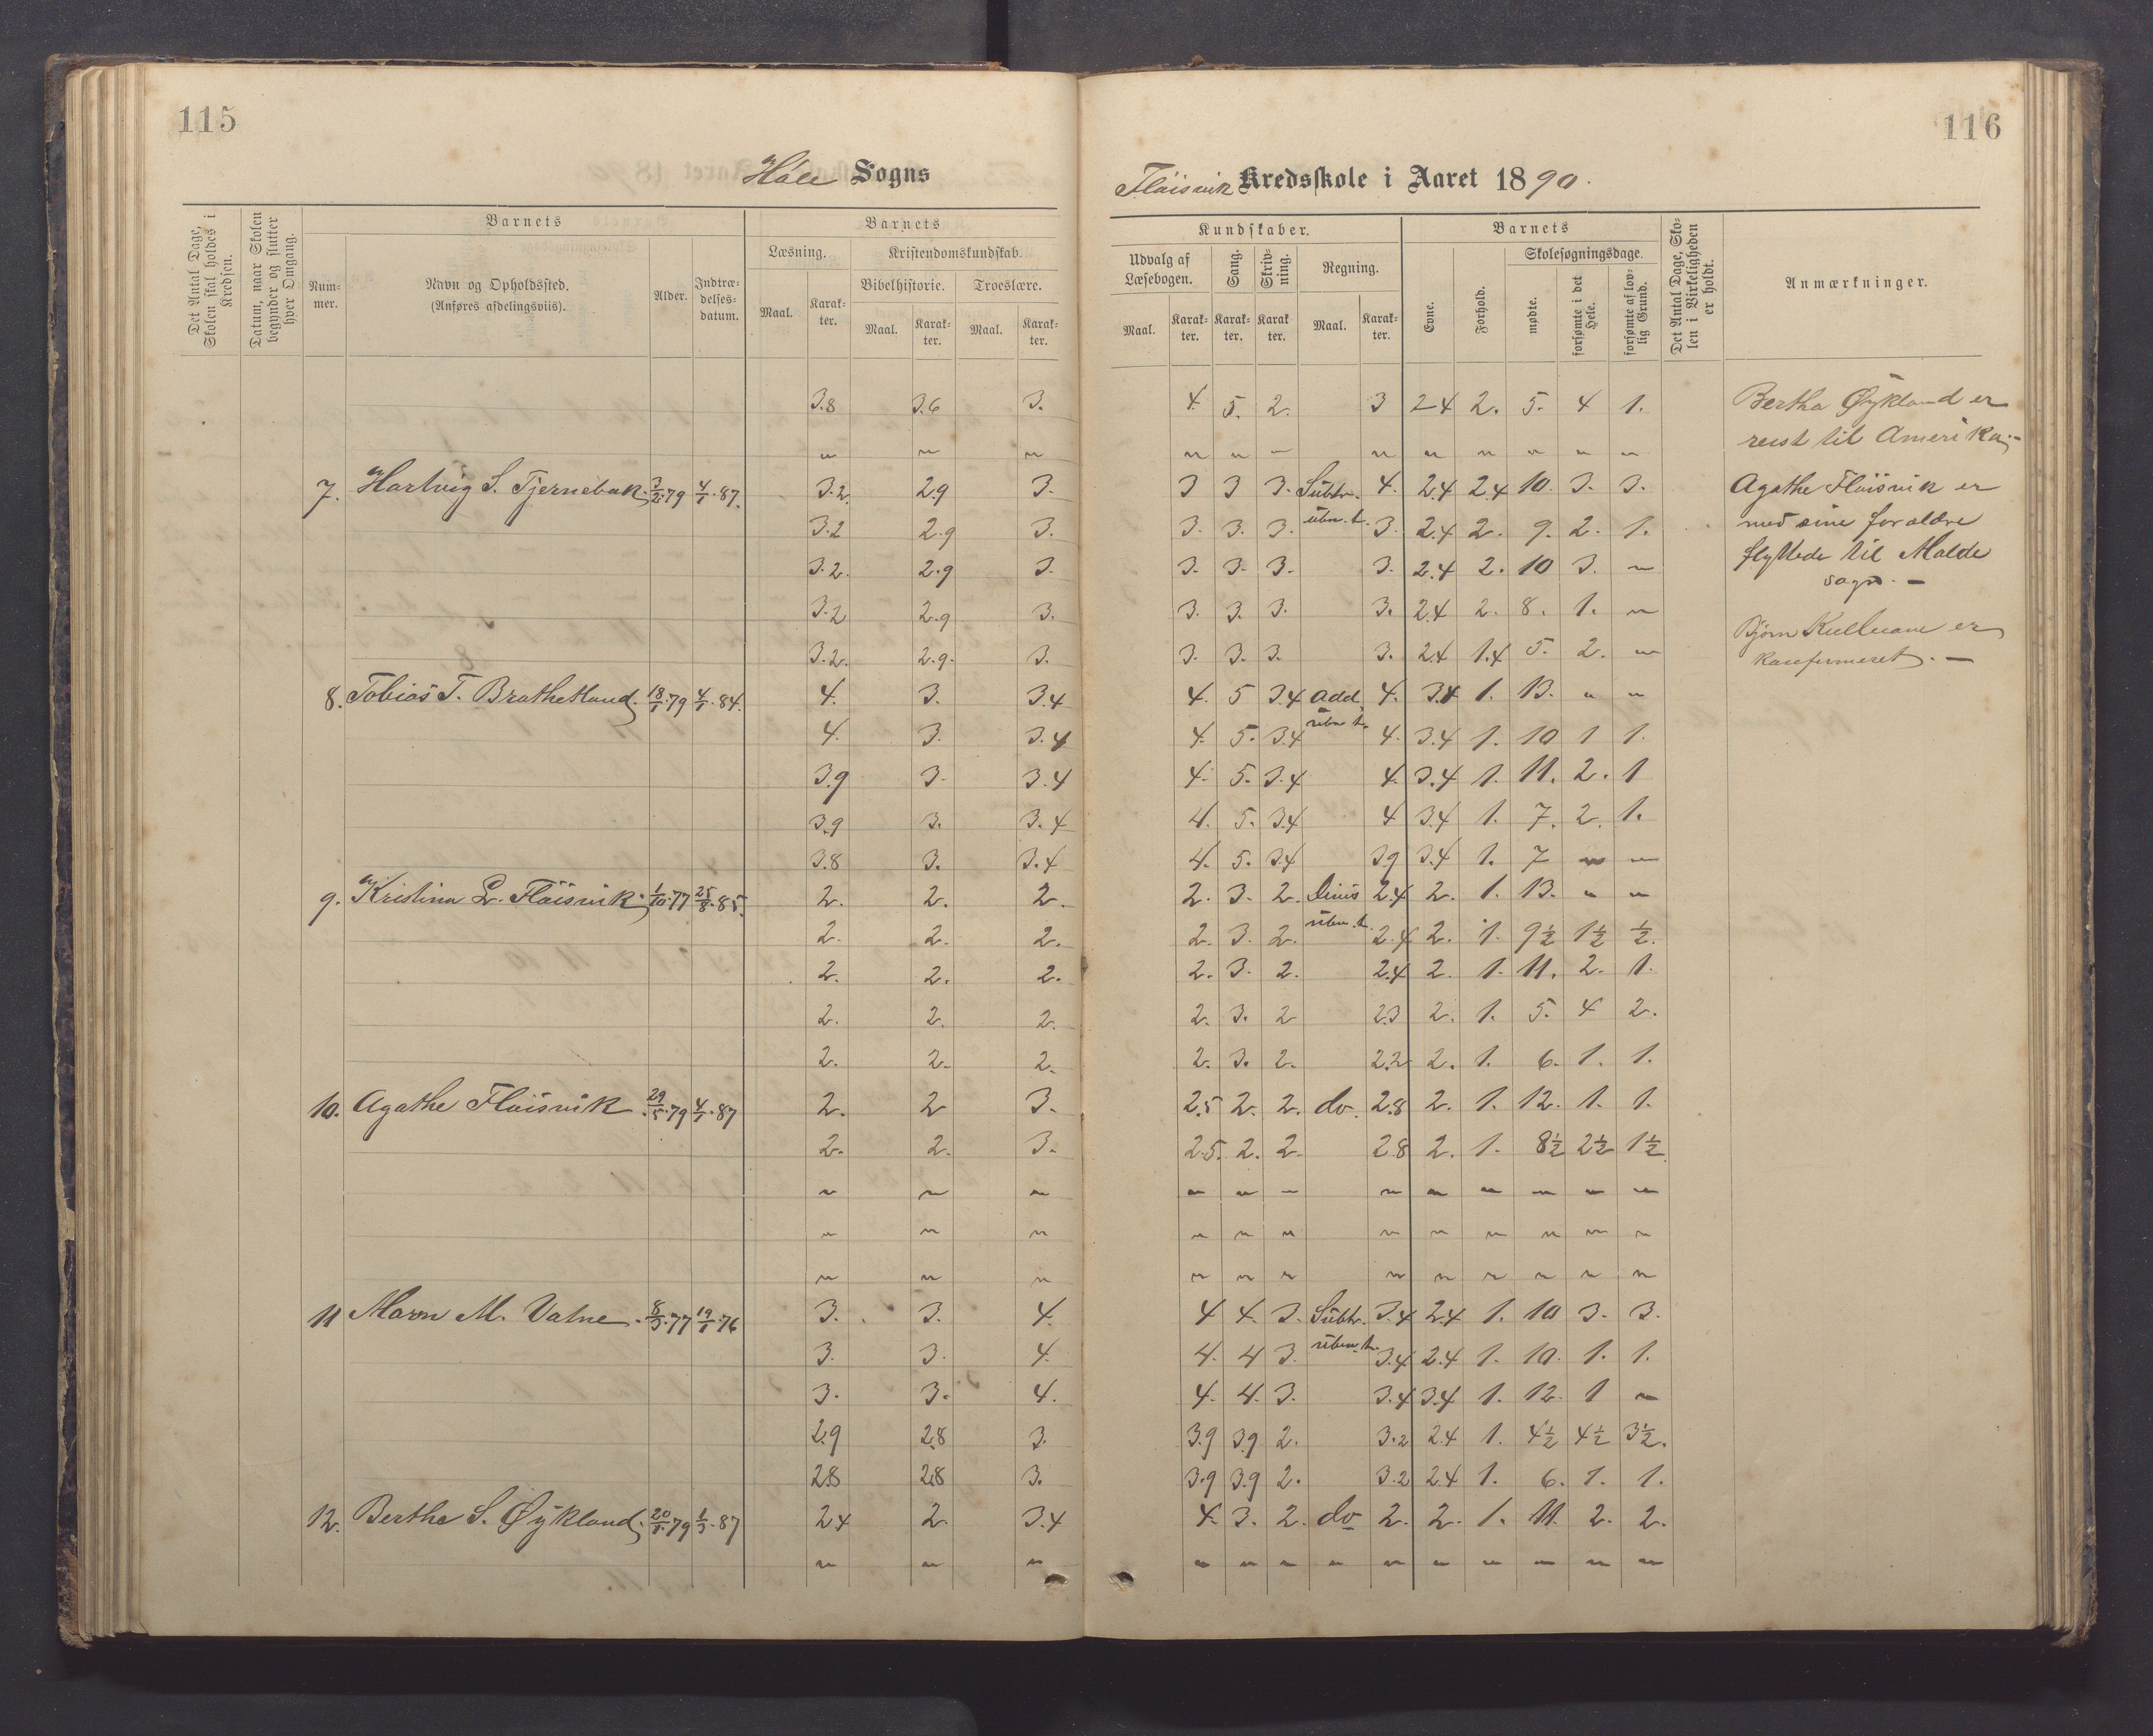 115
116
Høle Sogns
Fløisvik Kredsskole i Aaret 1890.
Det Antal Dage, Skolen skal holdes i Kredsen.
Datum, naar Skolen begynder og slutter hver Omgang.
Barnets
Nummer.
Navn og Opholdssted.
(Anføres afdelingsviis).
Alder.
Indtrædelsesdatum.
Barnets
Læsning.
Kristendomskundskab.
Bibelhistorie.
Troeslære.
Maal. Karakter. Maal. Karakter. Maal. Karakter.
Kundskaber.
Udvalg af Læsebogen. Sang. Skrivning. Regning.
Maal. Karakter. Karakter. Karakter. Maal. Karakter.
Barnets
Evne. Forhold.
Skolesøgningsdage.
mødte. forsømte i det Hele. forsømte af lovlig Grund.
Det Antal Dage, Skolen i Virkeligheden er holdt.
Anmærkninger.
3.8 3.6 3. 4. 5. 2. 3 2.4 2. 5. 4 1.
" " " " " " " " " " " "
7. Hartvig S. Tjernebak. 3/2.79 4/1.87. 3.2 2.9 3. 3 3 3. Subtr. 4. 2.4 2.4 10. 3. 3.
3.2 2.9 3. 3. 3. 3. uben. t. 3. 2.4 2. 9. 2. 1.
3.2. 2.9 3. 3. 3. 3. 3. 2.4 2. 10 3. "
3.2 2.9 3. 3. 3. 3. 3. 2.4 2. 8. 1. "
3.2. 2.9. 3. 3. 3. 3. 3. 2.4 1.4 5. 2. "
8. Tobias T. Brathetland. 18/1.79 4/1.84. 4. 3. 3.4 4. 5 3.4 add. 4. 3.4 1. 13. " "
4. 3. 3.4 4. 5. 3.4 uben t. 4. 3.4 1. 10 1 1.
3.9 3. 3.4 4. 5. 3.4 4. 3.4 1. 11. 2. 1
3.9 3. 3.4 4. 5. 3.4 4 3.4 1. 7. 2. 1.
3.8 3. 3.4 4. 5. 3.4 3.9 3.4 1. 7 " "
9. Kristina L. Fløisvik. 1/10.77 25/8.85. 2. 2. 2. 2. 3. 2. Divis 2.4 2. 1. 13. " "
2. 2. 2. 2. 3. 2. uben. t. 2.4 2. 1. 9½ 1½ ½.
2. 2. 2. 2. 3. 2. 2.4 2. 1. 11. 2. 1.
2. 2. 2. 2. 3. 2 2.3 2. 1. 5. 4 2.
2. 2. 2. 2. 3. 2. 2.2 2. 1. 6. 1. 1.
10. Agathe Fløisvik. 29/5.79 4/1.87 2. 2 3. 2.5 2. 2. do. 2.8 2. 1. 12. 1. 1.
2. 2. 3. 2.5. 2. 2. 2.8 2. 1. 8½ 2½ 1½
" " " " " " " " " " " "
" " " " " " " " " " " "
" " " " " " " " " " " "
11 Maren M. Valne. 8/3.77 19/1.76 3. 3. 4. 4 4. 3. Subtr. 3.4 2.4 1. 10 3. 3.
3. 3. 4. 4. 4 3. uben. t. 3.4 2.4 1. 10. 1. 1.
3. 3. 4. 4. 4. 3. 3.4 3.4 1. 12. 1 "
2.9 2.8 3. 3.9 3.9 2. 3.2 2.4 1. 4½ 4½ 3½.
2.8 2.8 3. 3.9 3.9 2. 3.2 2.4 1. 6. 1. 1.
12. Berthe S. Øykland. 20/1.79 1/3.87 2.4 2. 3.4 4. 3. 2. do 2. 2. 1. 11. 2. 2.
" " " " " " " " " " " " "
Bertha Øykland er
reist til Amerika.-
Agathe Fløisvik er
med sine forældre
flyttede til Malde
sogn. -
Bjørn er
konfirmeret. -